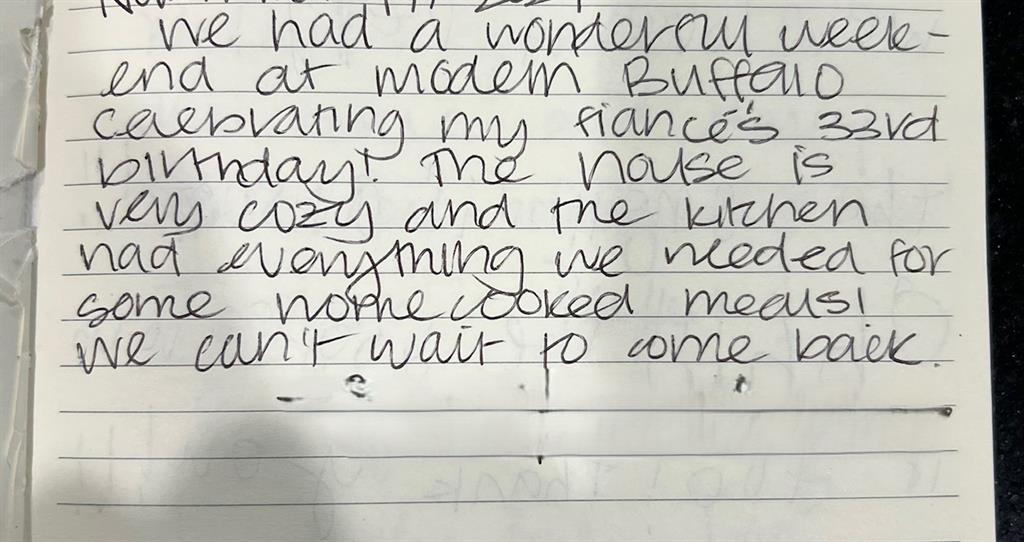 we had a wonderful week-
end at modern Buffalo
celebrating my fiancé's 33rd
birthday! The house is
very cozy and the kitchen
had everything we needed for
some home cooked meals!
we can't wait to come back.